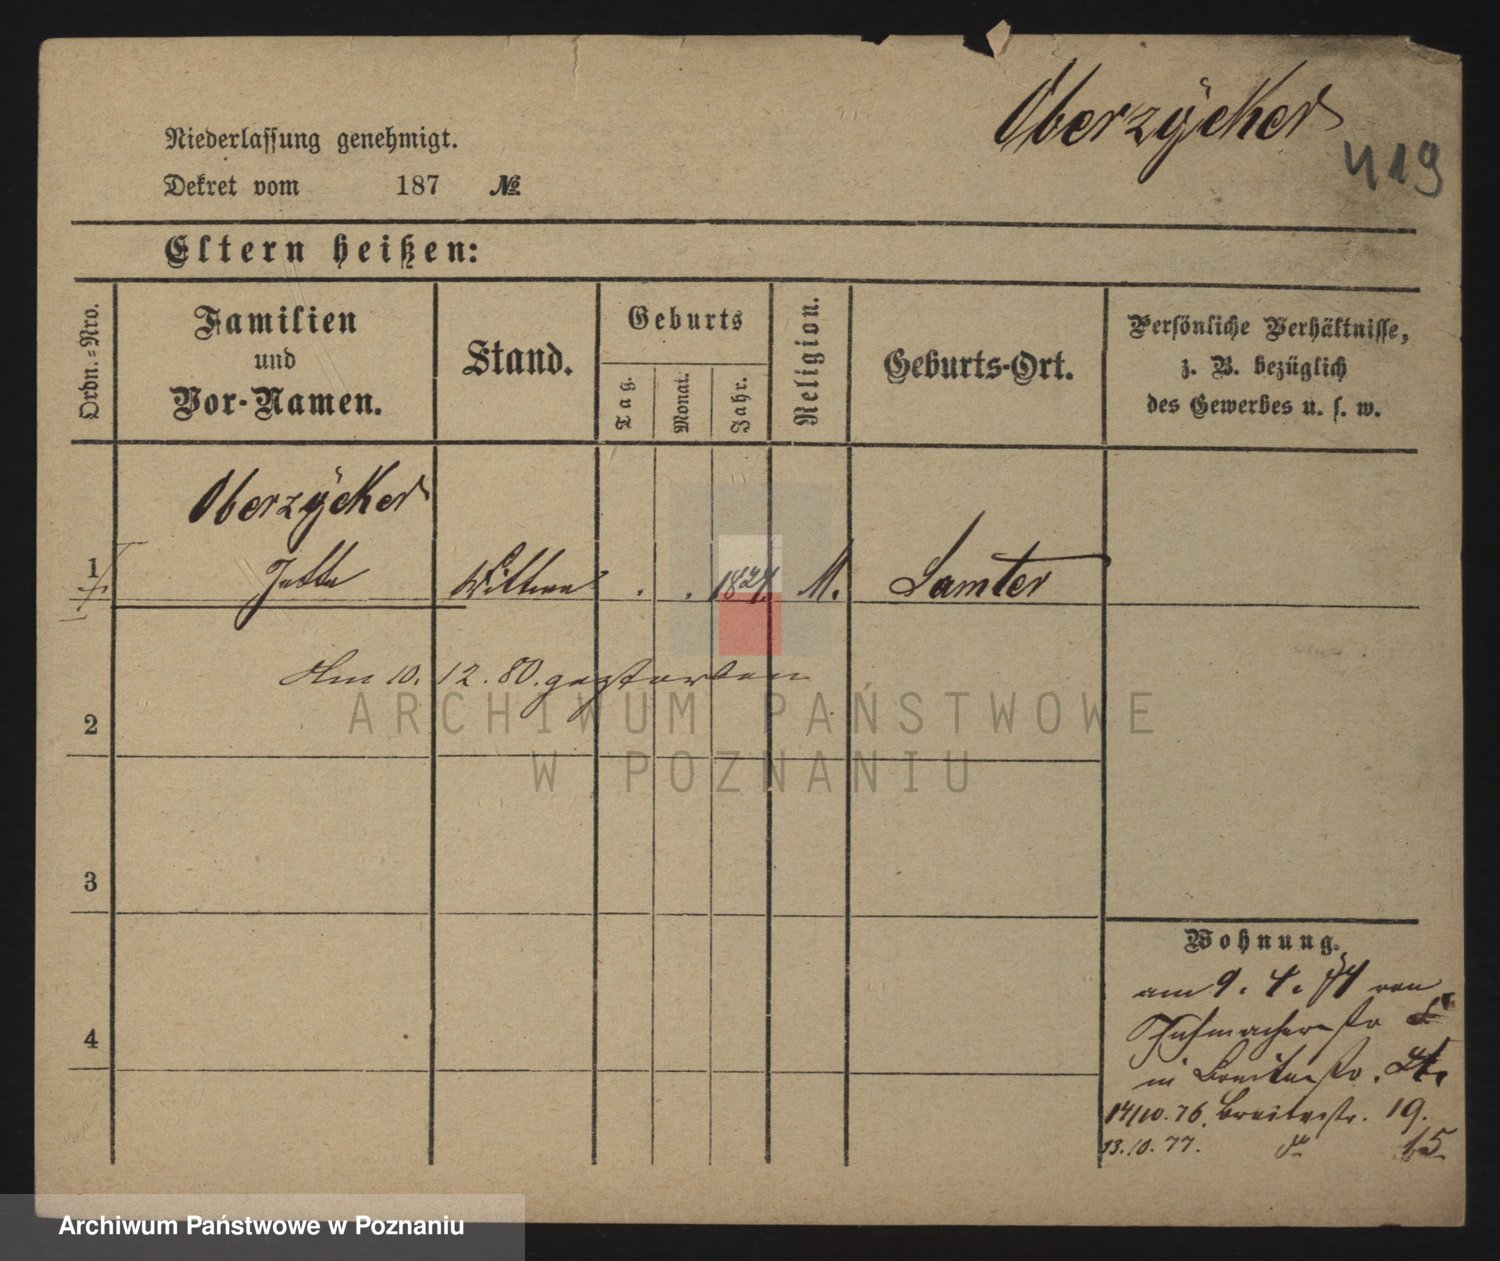 Oberzÿcker
419
Niederlassung genehmigt.
Dekret vom 187 №
Eltern heißen:
Ordn.-Nro.
Familien
und
Vor-Namen.
Stand.
Geburts
Tag.
Monat.
Jahr.
Religion.
Geburts-Ort.
Persönliche Verhältnisse,
z. B. bezüglich
des Gewerbes u. s. w.
Oberzÿcker
1 Jette Wittwe . . 1827. M. Samter
Am 10. 12. 80. gestorben
2
3
4
Wohnung.
am 9. 4. 74 von
Schuhmacherstr
in Breitestr. 24.
14/10. 76. Breitestr. 19.
13. 10. 77. do 15.
ARCHIWUM PAŃSTWOWE
W POZNANIU
Archiwum Państwowe w Poznaniu